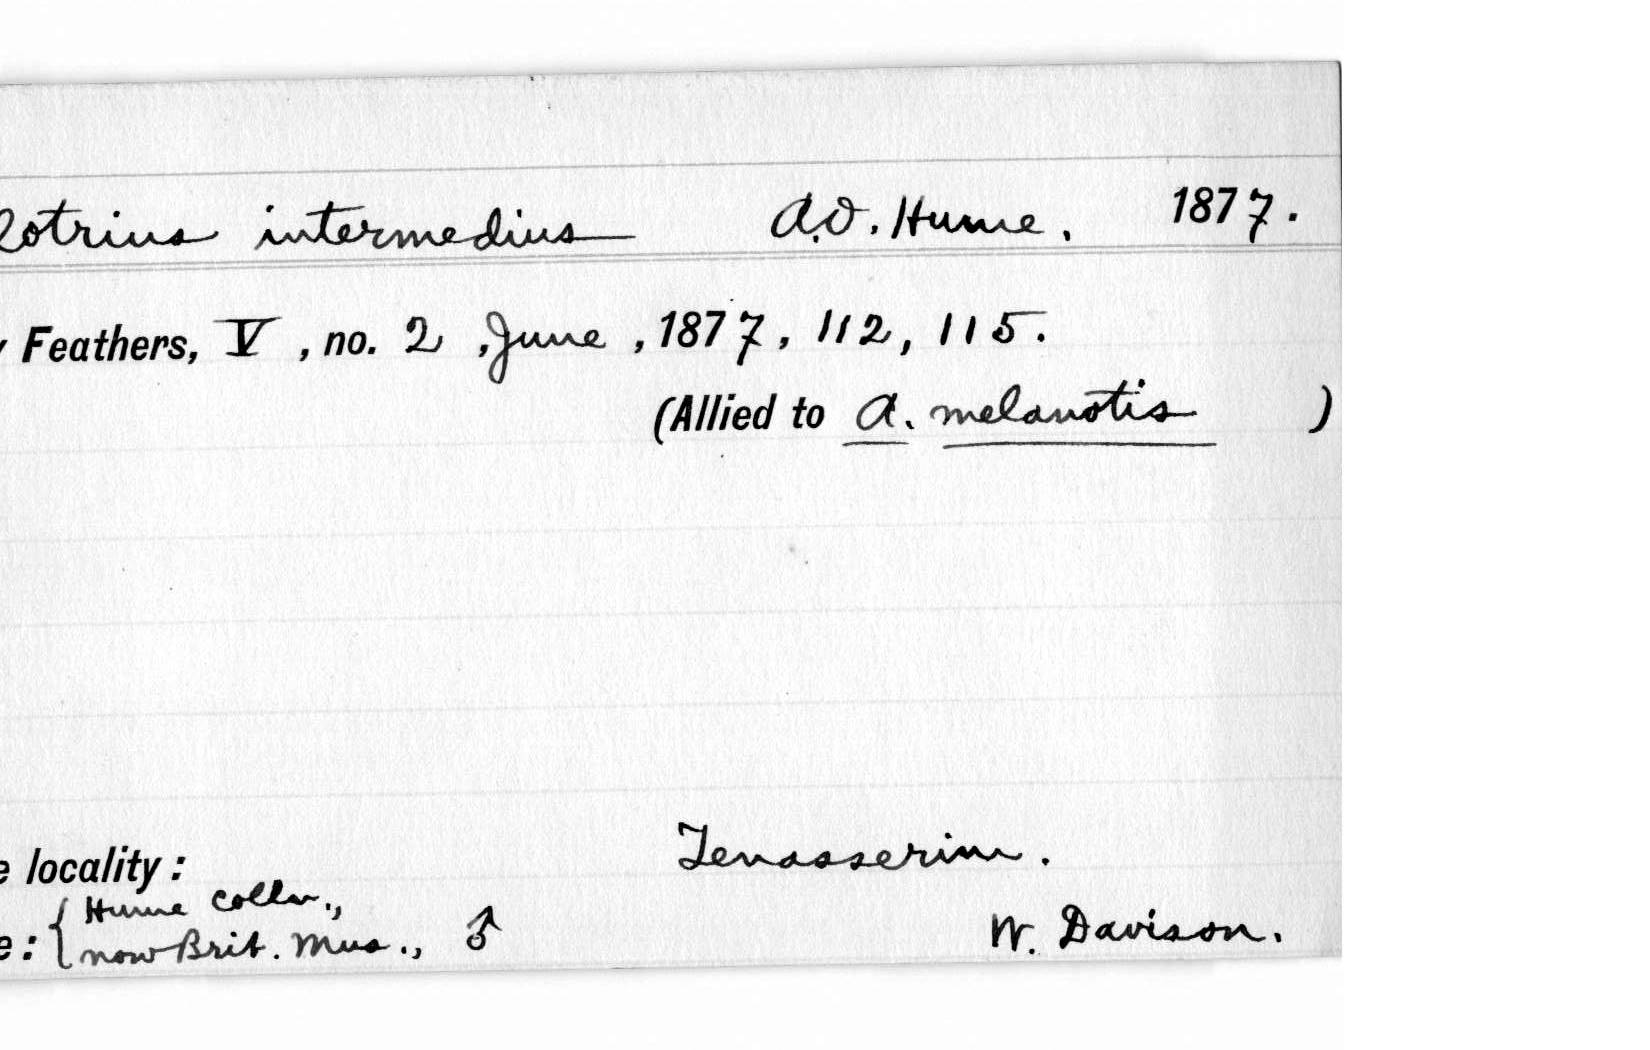 lotrius intermedius A.O. Hume. 1877.
y Feathers, V, no. 2, June, 1877, 112, 115.
(Allied to A. melanotis )
e locality: Tenasserim.
e: { Hume Colln.,
now Brit. Mus., ♂ W. Davison.